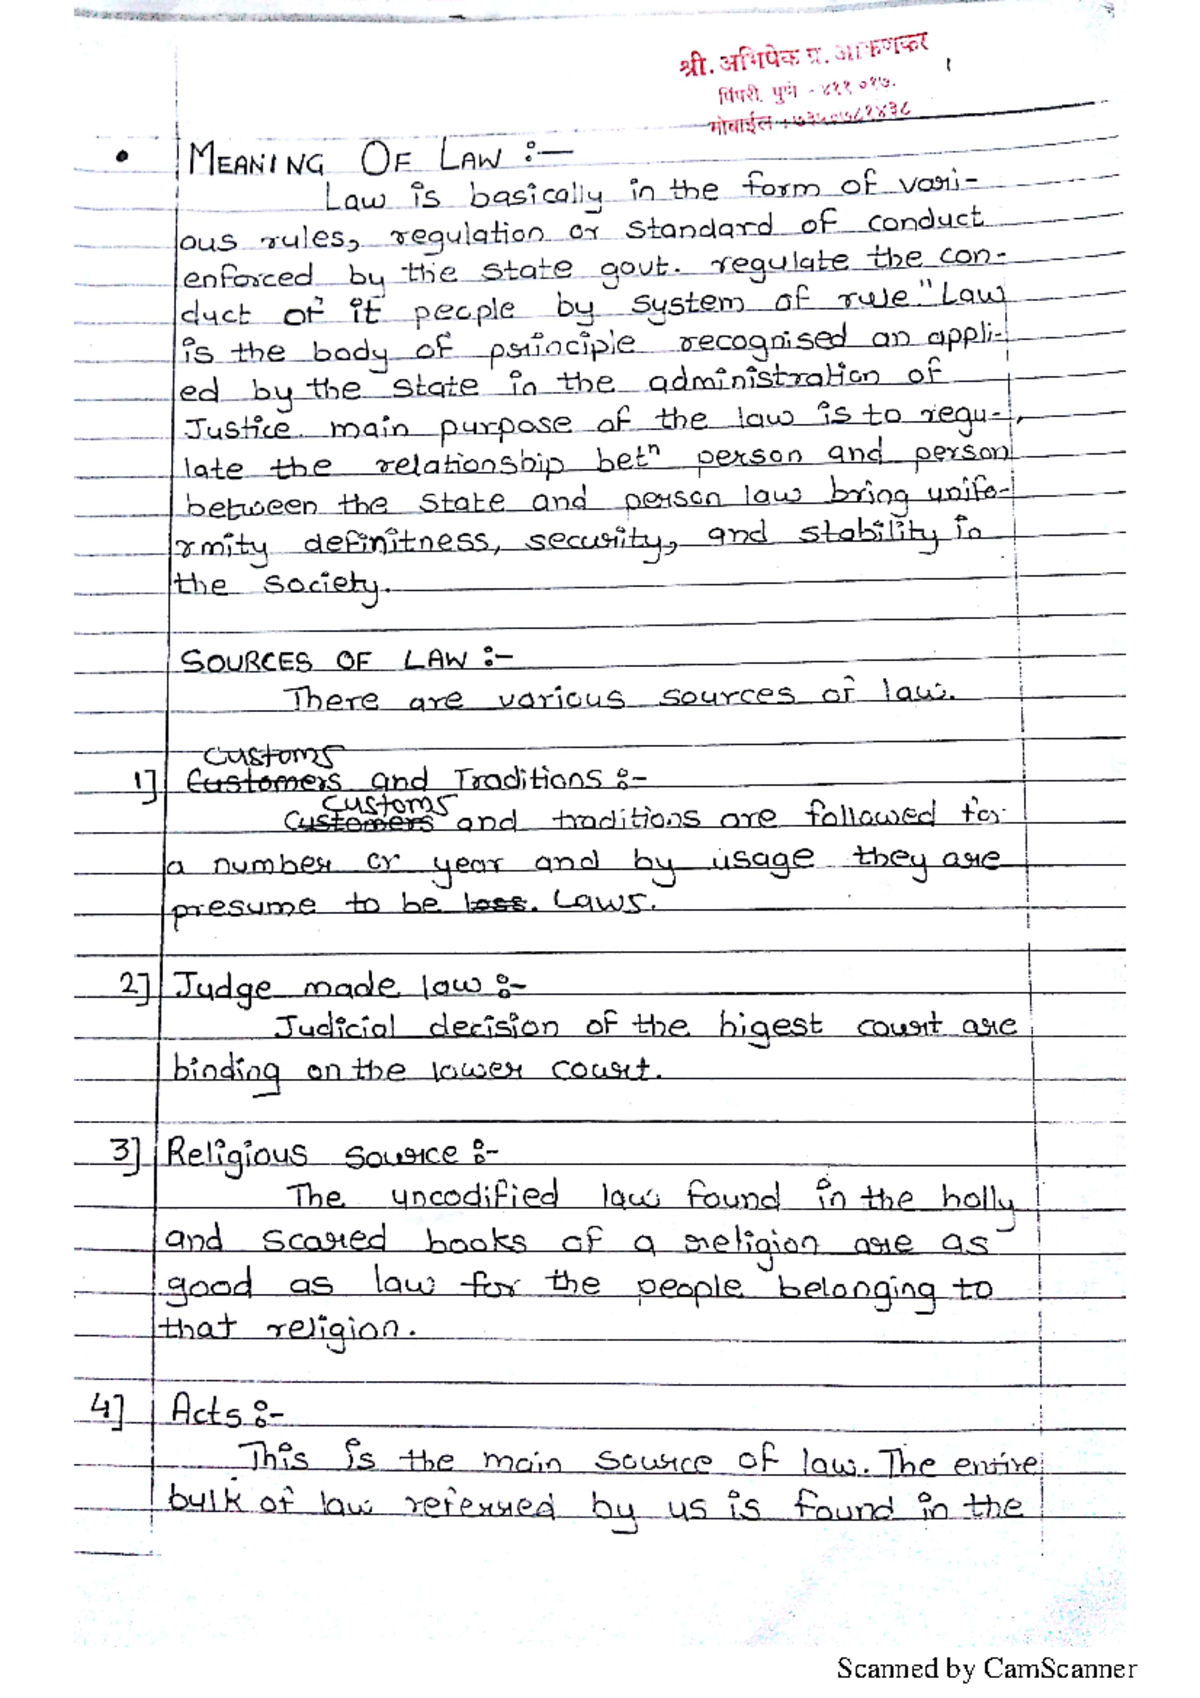 श्री. अभिषेक प्र. आकणकर
पिंपरी, पुणे - ४११ ०१७.
मोबाईल
• MEANING OF LAW :—
Law is basically in the form of vari-
ous rules, regulation or standard of conduct
enforced by the state govt. regulate the con-
duct of it people by system of rule." Law
is the body of principle recognised an appli-
ed by the state in the administration of
Justice. main purpose of the law is to regu-
late the relationship betn person and person
between the state and person law bring unifo-
rmity definitness, security, and stability in
the society.
SOURCES OF LAW :-
There are various sources of law.
Customs
1] Customers and Traditions :-
Customs
Customers and traditions are followed for
a number or year and by usage they are
presume to be less. Laws.
2] Judge made law :-
Judicial decision of the higest court are
binding on the lower court.
3] Religious source :-
The uncodified law found in the holly
and scared books of a religion are as
good as law for the people belonging to
that religion.
4] Acts :-
This is the main source of law. The entire
bulk of law referred by us is found in the
Scanned by CamScanner